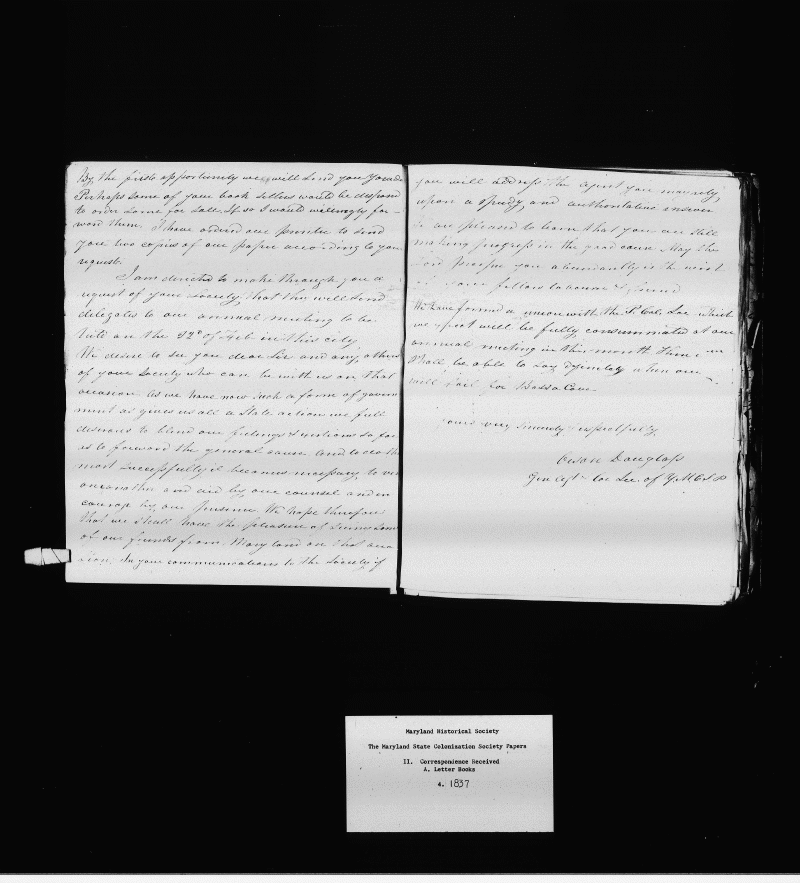 By the first opportunity we will send you
Perhaps some of your book sellers would be disposed
to order some for sale. If so I would willingly for-
ward them. I have ordered our printer to send
you two copies of our paper according to your
request.
I am directed to make through you a
request of your Society, that they will send
delegates to our annual meeting to be
held on the 22d of Feb in this city.
We desire to see you dear Sir and any others
of your Society who can be with us on that
occasion. As we have now such a form of govern
ment as gives us all a State action we feel
desirous to blend our feelings & so far
as to forward the general cause. And to do this
most successfully it becomes necessary to
one another and aid by our counsel and en
courage by our presence. We hope therefore
that we shall have the pleasure of seeing some
of our friends from Maryland on that occa
sion. In your communications to the Society if
you will address the agent you may rely
upon a speedy and authoritative answer
We are pleased to learn that you are still
making progress in the good cause. May the
Lord prosper you abundantly is the wish
of your fellow labourer & friend
We have formed a union with the P. Col. Soc. which
we expect will be fully consummated at our
annual meeting in this month. Then we
shall be able to say definitely when our
will sail for Bassa Cove.
Yours very sincerely & respectfully
Orson Douglass
Gen Agt Cor Sec. of Y.M Col S
Maryland Historical Society
The Maryland State Colonization Society Papers
II. Correspondence Received
A. Letter Books
4. 1837